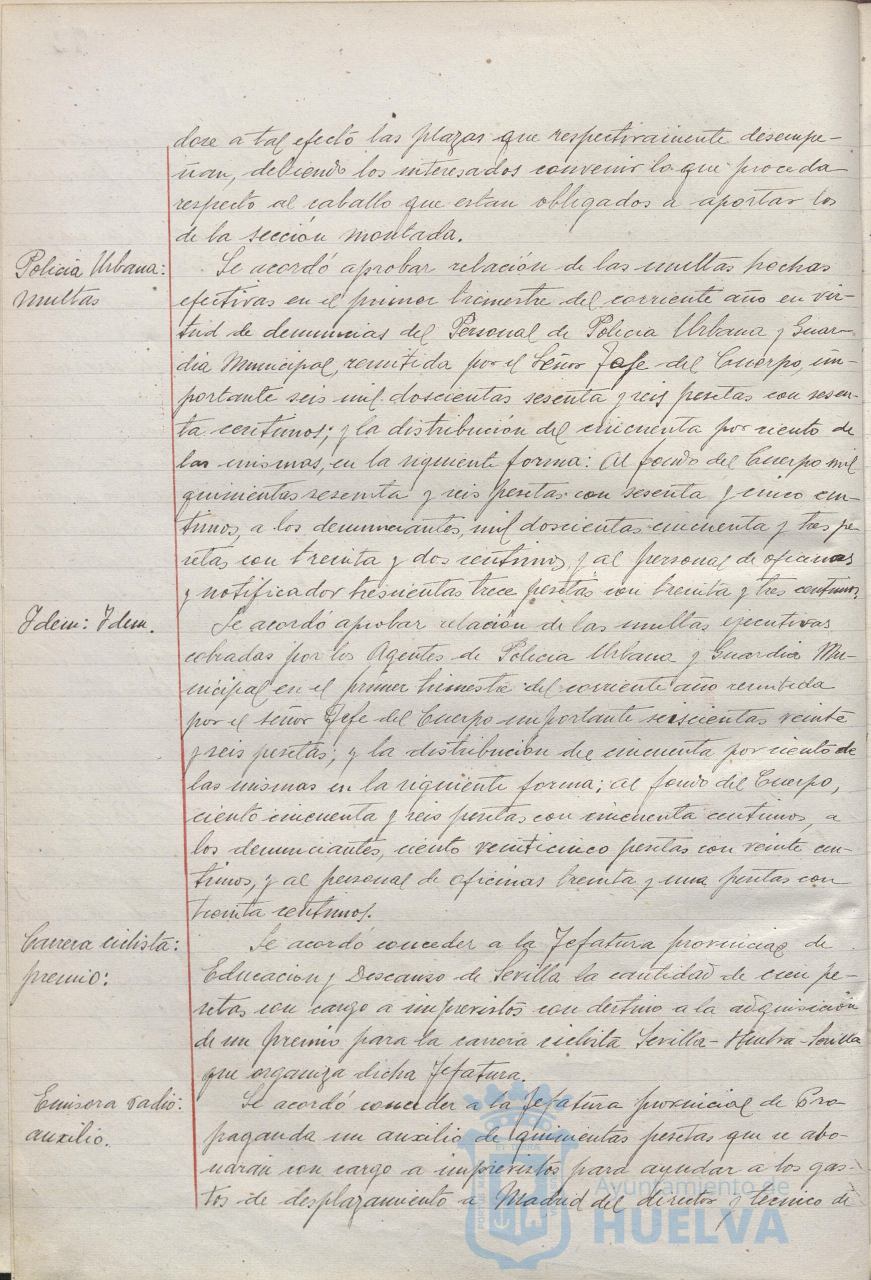 dose a tal efecto las plazas que respectivamente desempe-
ñan, debiendo los interesados convenir lo que proceda
respecto al caballo que estan obligados a aportar los
de la sección montada.
Policia Urbana:
multas
Se acordó aprobar relación de las multas hechas
efectivas en el primer trimestre del corriente año en vir-
tud de denuncias del Personal de Policia Urbana y Guar-
dia Municipal, remitida por el Señor Jefe del Cuerpo, im-
portante seis mil doscientas sesenta y seis pesetas con sesen-
ta centimos; y la distribución del cincuenta por ciento de
las mismas, en la siguiente forma: Al fondo del Cuerpo mil
quinientas sesenta y seis pesetas con sesenta y cinco cen-
timos, a los denunciantes, mil doscientas cincuenta y tres pe-
setas con treinta y dos centimos, y al personal de oficinas
y notificador trescientas trece pesetas con treinta y tres centimos.
Idem: Idem.
Se acordó aprobar relación de las multas ejecutivas
cobradas por los Agentes de Policia Urbana y Guardia Mu-
nicipal en el primer trimestre del corriente año remitida
por el señor Jefe del Cuerpo importante seiscientas veinte
y seis pesetas; y la distribucion del cincuenta por ciento de
las mismas en la siguiente forma; al fondo del Cuerpo,
ciento cincuenta y seis pesetas con cincuenta centimos, a
los denunciantes, ciento veinticinco pesetas con veinte cen-
timos, y al personal de oficinas treinta y una pesetas con
treinta centimos.
Carrera ciclista:
premio:
Se acordó conceder a la Jefatura provincial de
Educacion y Descanso de Sevilla la cantidad de cien pe-
setas con cargo a imprevistos con destino a la adquisición
de un premio para la carrera ciclista Sevilla-Huelva-Sevilla
que organiza dicha Jefatura.
Emisora radio:
auxilio.
Se acordó conceder a la Jefatura provincial de Pro
paganda un auxilio de quinientas pesetas que se abo-
narán con cargo a imprevistos para ayudar a los gas-
tos de desplazamiento a Madrid del director y tecnico de
Ayuntamiento de
HUELVA